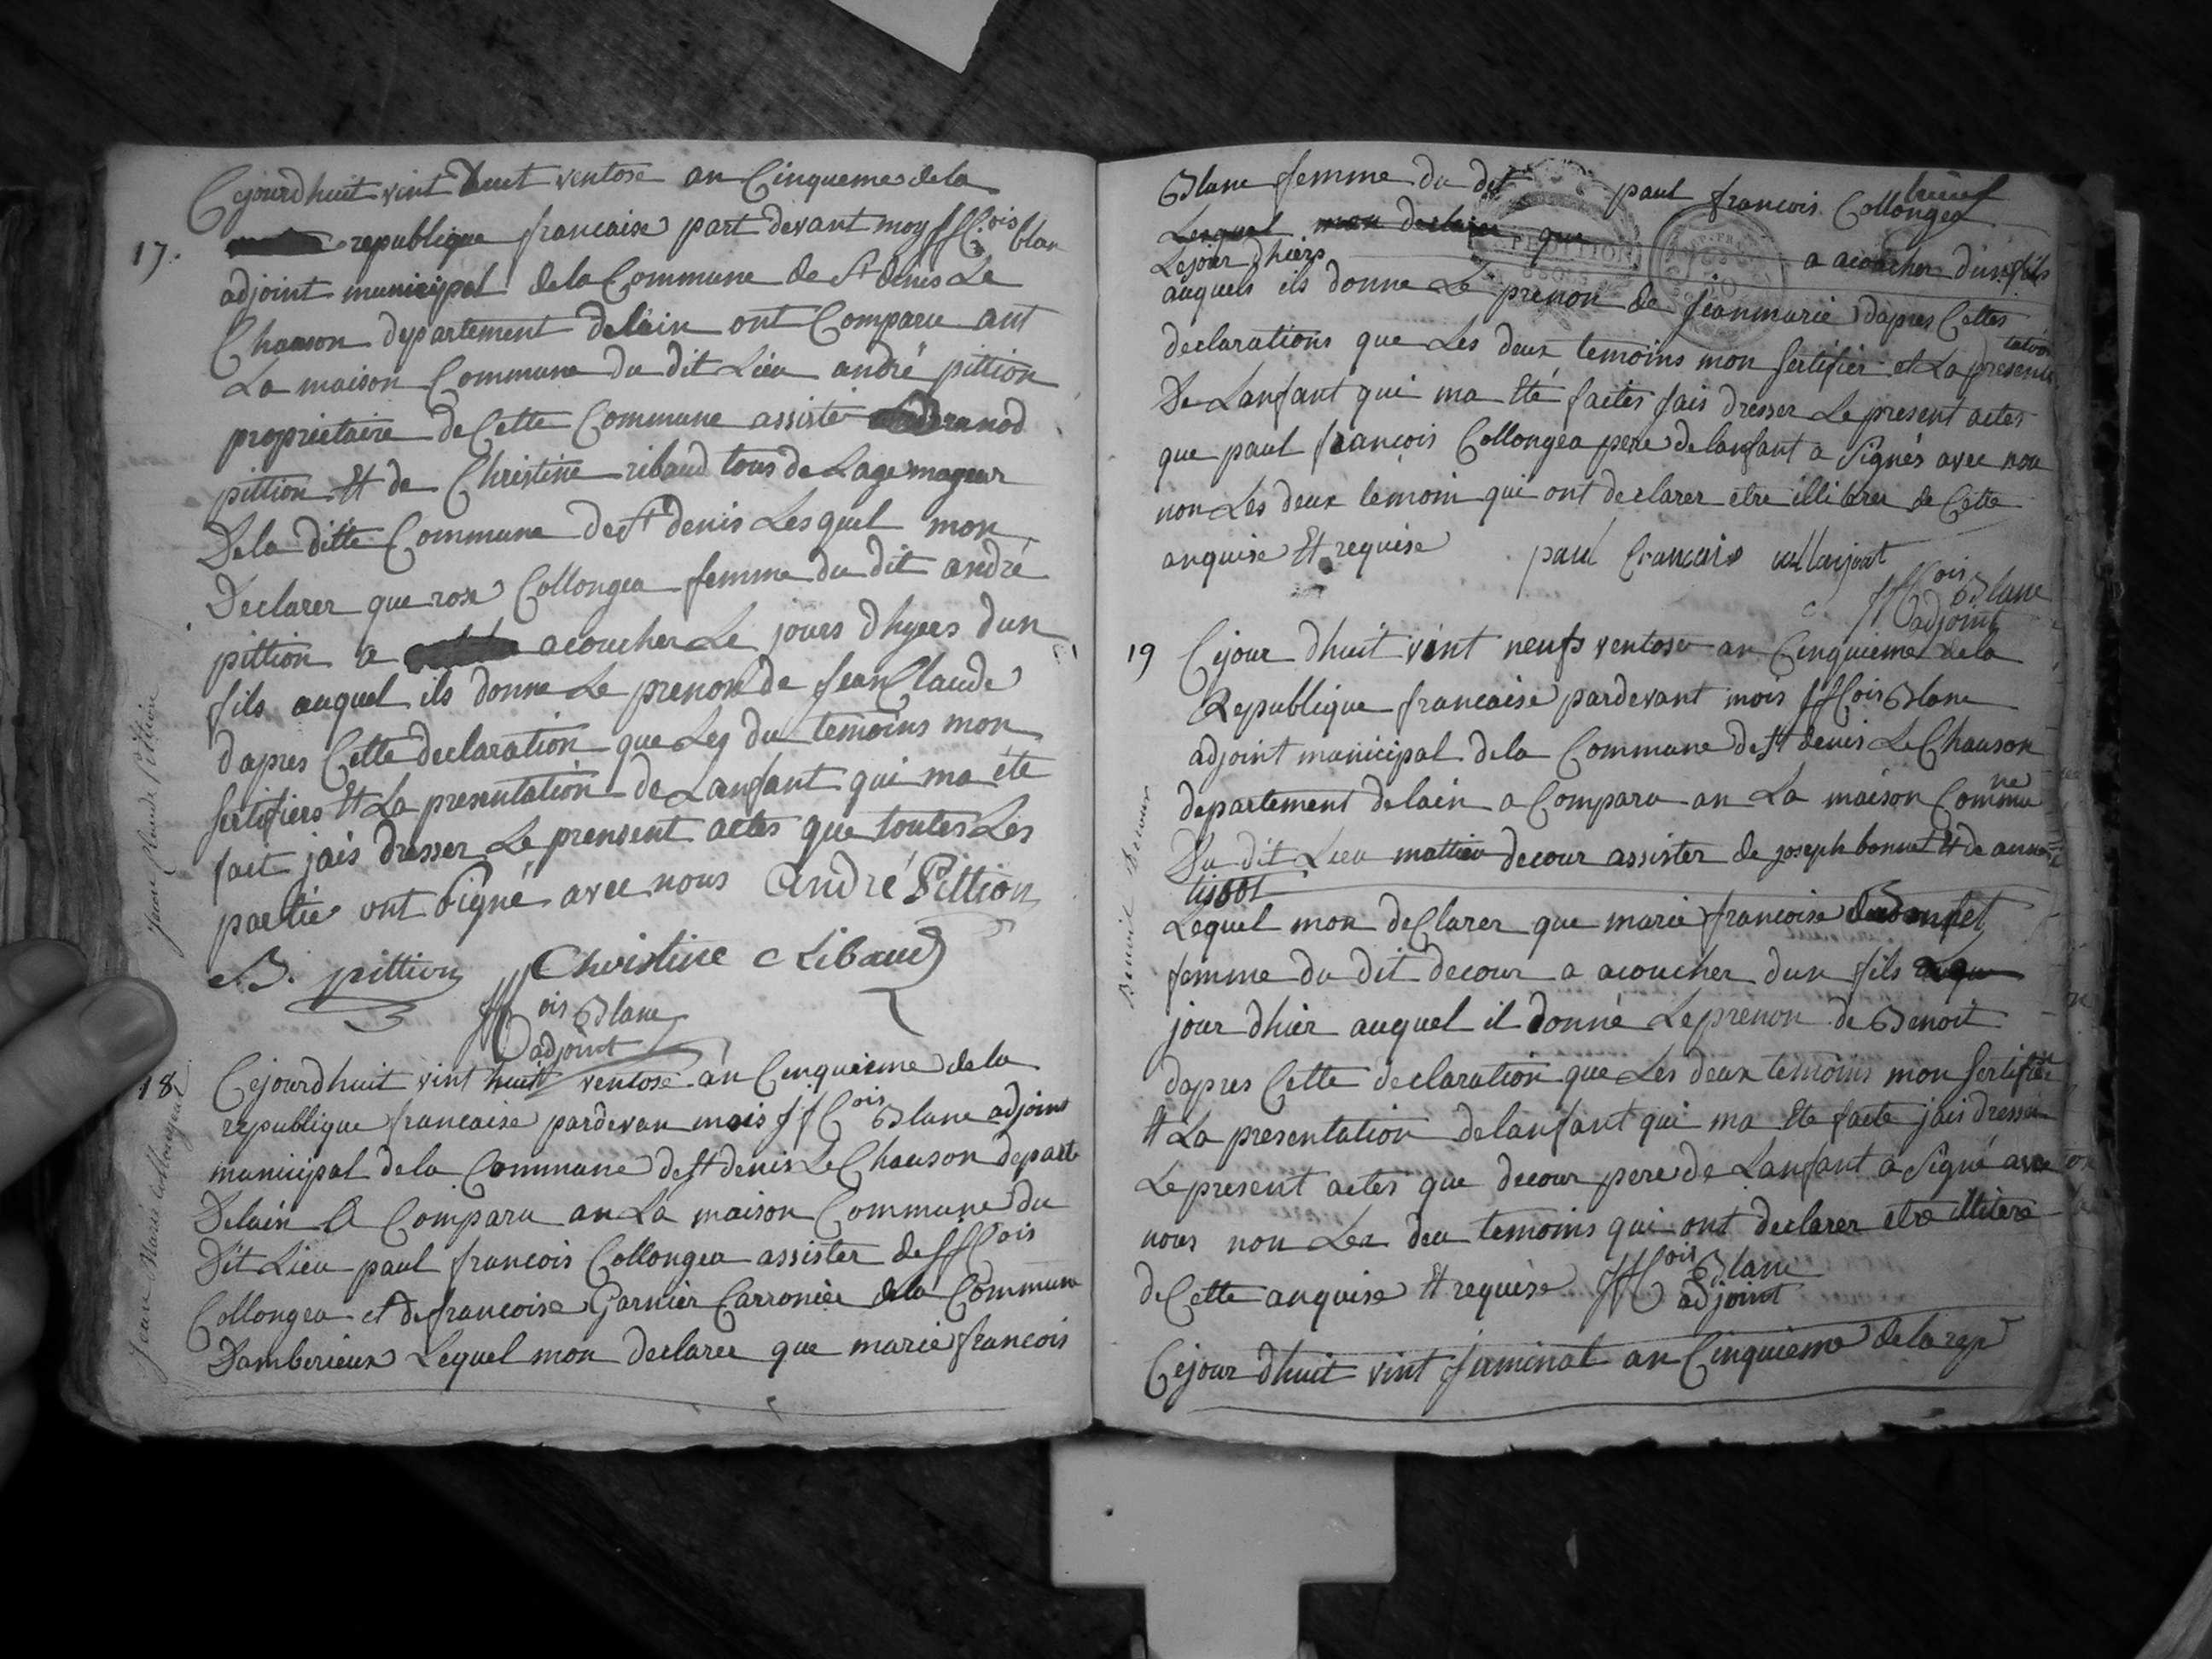 17.
Cejourdhuit vint huit ventose an Cinquieme dela
republique francaise part devant moy ffCois blan
adjoint municipal dela Commune de St denis Le
Chauson departement delain ont Comparu ant
La maison Commune du dit Lieu andré pittion
proprietaire de Cette Commune assiste
pittion Et de Christine ribaud tous de Lage mageur
Dela ditte Commune de St denis Lesquel mon
Declarer que rose Collongea femme du dit andré
pittion a acoucher Le jours dhyers dun
fils auquel ils donne Le prenon de jean Claude
dapres Cette declaration que Les du temoins mon
sertifiers Et La presentation de Lanfant qui ma été
fait jais dresser Le prensent actes que toutes Les
partie ont signé avec nous André Pittion
B. pittion Christine Ribaud
ffCois Blanc
adjoint
jean Claude Pittion
18
Cejourdhuit vint huit ventose an Cinquieme dela
republique francaise pardevan mois ffCois Blanc adjoint
municipal dela Commune de St denis Le Chauson depart
Delain a Comparu an La maison Commune du
Dit Lieu paul francois Collongea assister de ffCois
Collongea et de francoise Garnier Carronier dela Commune
Damberieux Lequel mon declarer que marie francois
Jean Marie Collongeat
Blanc femme du dit paul francois Collongea
Lesquel mon declarer que
Lejour dhiers a acoucher dun fils
auquels ils donne Le prenon de jeanmarie dapres Cettes
declarations que Les deux temoins mon sertifier et La presentation
De Lanfant qui ma Eté faites jais dresser Le present actes
que paul francois Collongea pere de lanfant a Signés avec nou
non Les deux temoin qui ont declarer etre illiterer de Cette
anquise Et requise paul francois collonjeat
ffCois Blanc
adjoint
19
Cejour dhuit vint neufs ventose an Cinquieme dela
Republique francaise pardevant mois ffCois Blanc
adjoint municipal dela Commune de St denis Le Chauson
departement delain a Comparu an La maison Commune
Du dit Lieu mattieu decour assister de joseph bonnet Et de anne
tissot
Lequel mon deClarer que marie francoise
femme du dit decour a acoucher dun fils
jour dhier auquel il donné Le prenon de Benoit
dapres Cette declaration que Les deux temoins mon sertifier
Et La presentation delanfant qui ma Eté faite jais dresser
Le present actes que decour pere de Lanfant a Signé avec
nous non Les deu temoins qui ont declarer etre illitere
de Cette anquise Et requise ffCois Blanc
adjoint
Benoit Decour
Cejour dhuit vint jerminal an Cinquieme dela rep